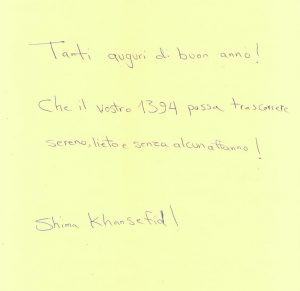 Tanti auguri di buon anno!
Che il vostro 1394 possa trascorrere
sereno, lieto e senza alcun affanno!
Shima Khansefid!